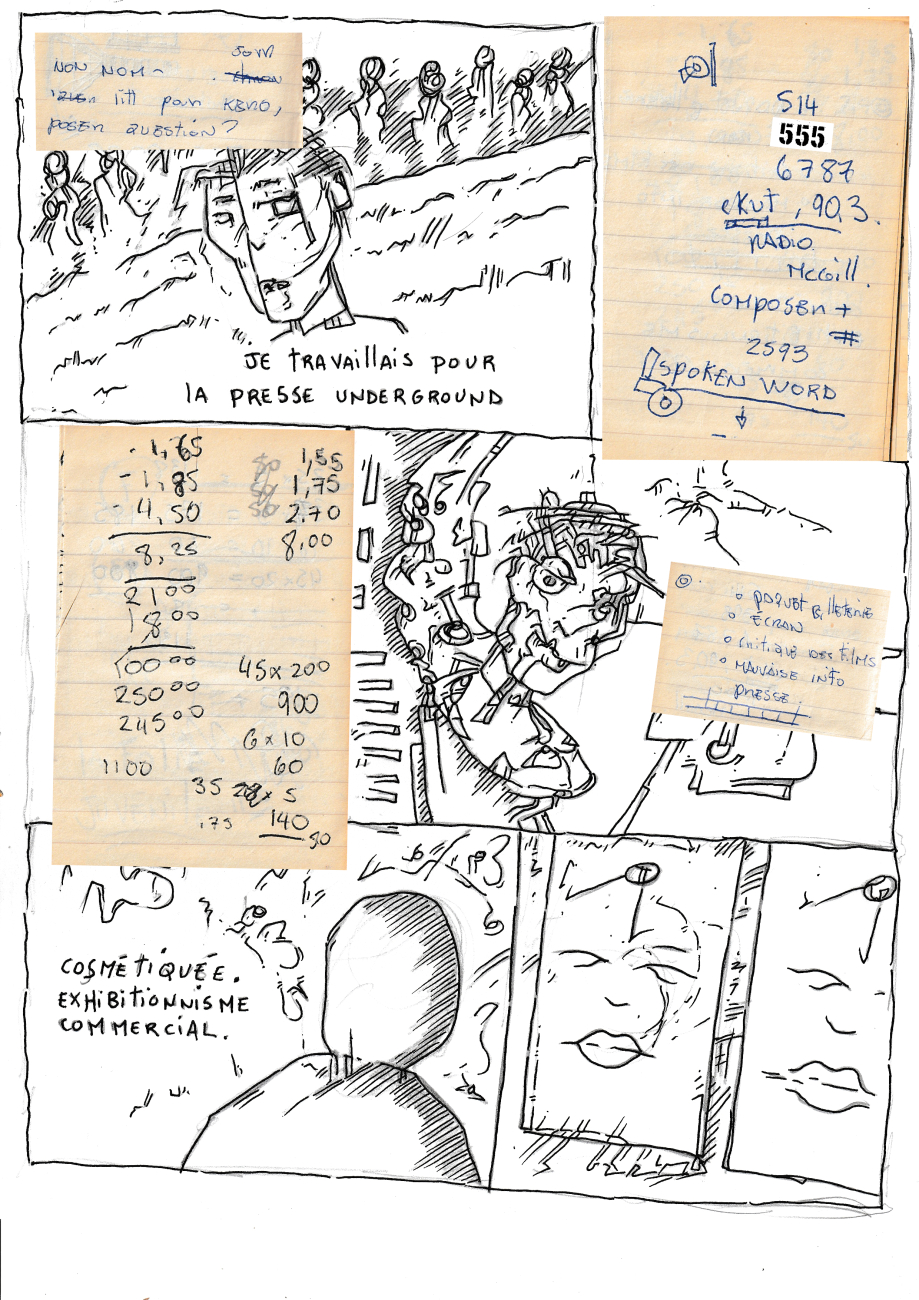 NON NOM -
litt pour KERO,
POSER QUESTION?
JE TRAVAILLAIS POUR
LA PRESSE UNDERGROUND
514
555
6787
CKUT, 90.3.
RADIO
McGill.
COMPOSER +
#
2593
SPOKEN WORD
- 1,65
- 1,85
4,50
8,25
21 00
18 00
100 00
250 00
245 00
1100
1,55
1,75
2.70
8,00
45 x 200
900
6 x 10
60
35 28 x 5
.75 140
50
PAQUET BILLETERIE
ECRAN
CRITIQUE DES FILMS
MAUVAISE INFO
PRESSE
COSMÉTIQUÉE.
EXHIBITIONNISME
COMMERCIAL.